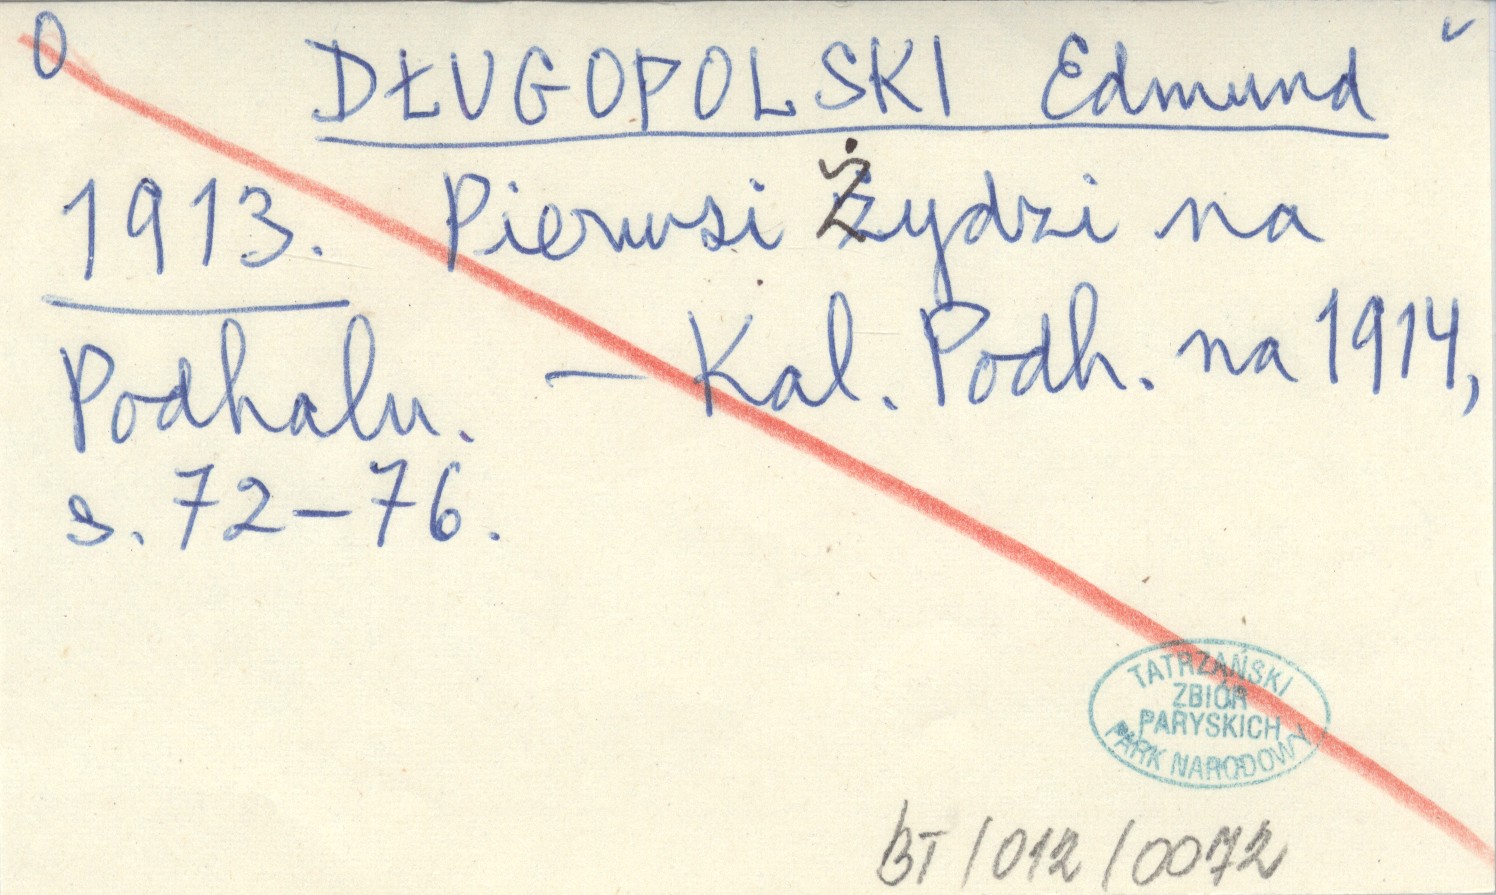 0
DŁUGOPOLSKI Edmund
1913. Pierwsi Żydzi na
Podhalu. — Kal. Podh. na 1914,
s. 72–76.
TATRZAŃSKI
ZBIÓR
PARYSKICH
PARK NARODOWY
BT/012/0072